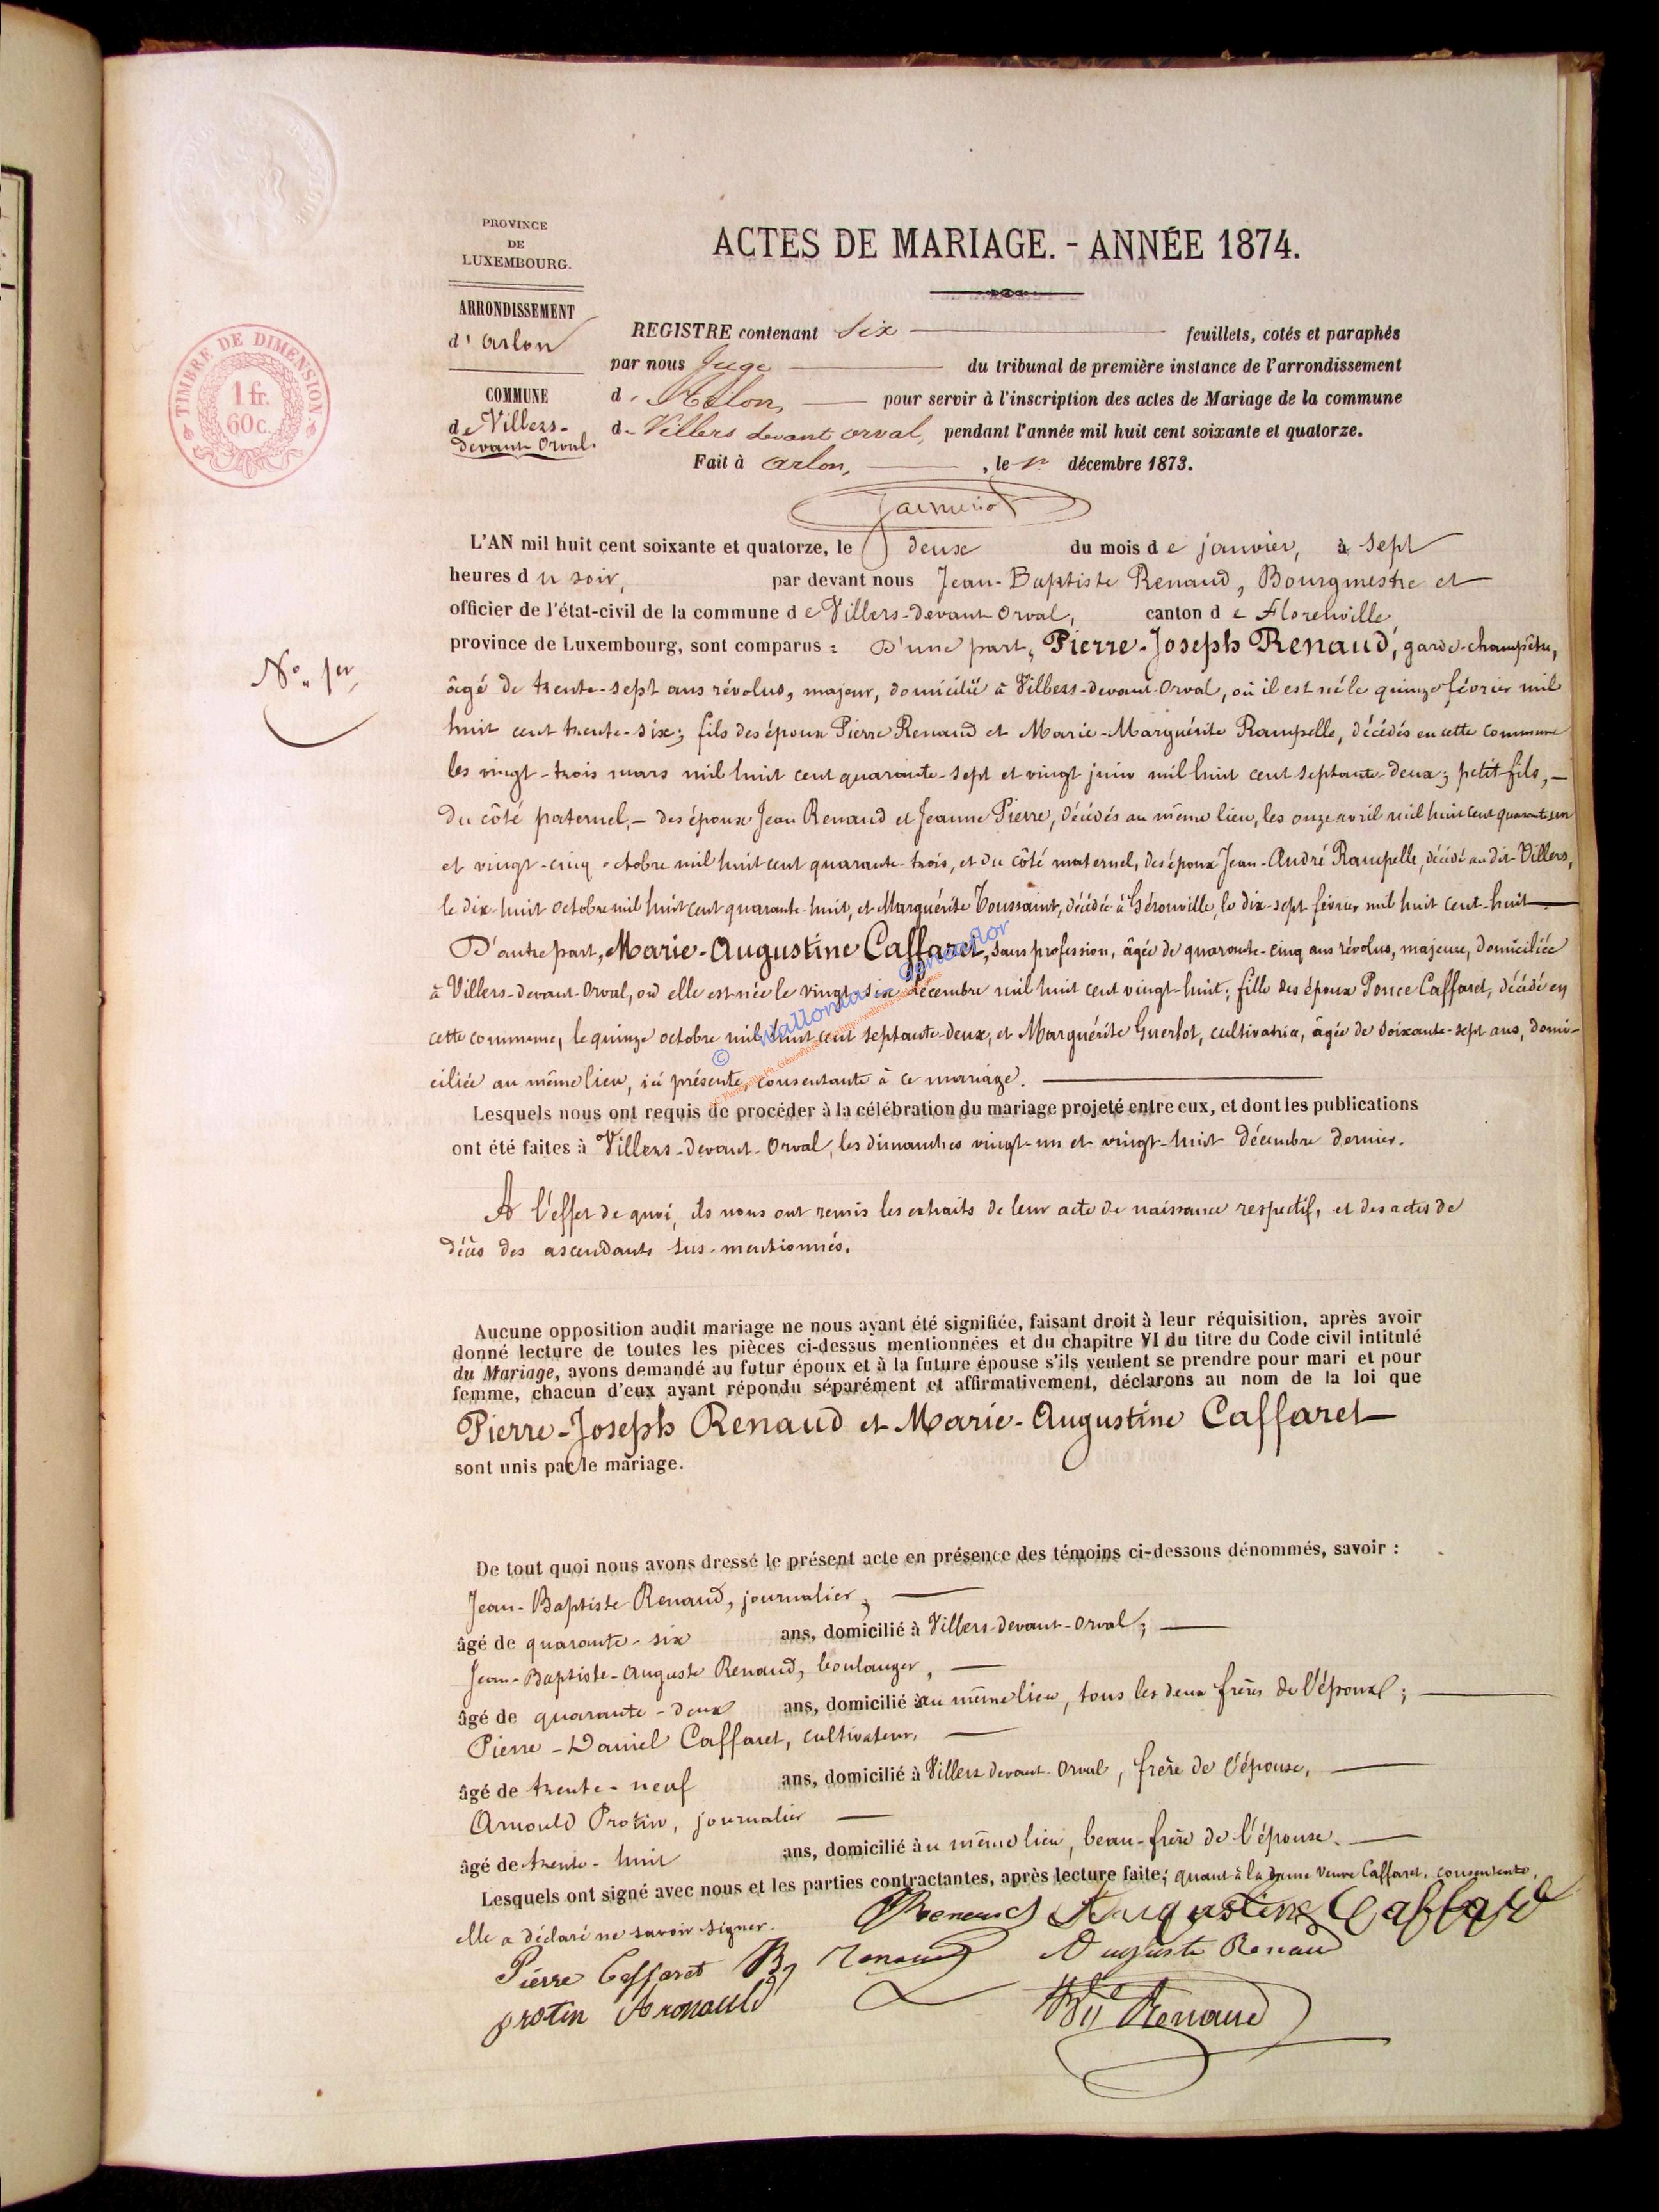 PROVINCE
DE
LUXEMBOURG.
ARRONDISSEMENT
d'Arlon
COMMUNE
de Villers-
devant-Orval.
TIMBRE DE DIMENSION
1 fr.
60 c.
ACTES DE MARIAGE. - ANNÉE 1874.
REGISTRE contenant Six feuillets, cotés et paraphés
par nous Juge du tribunal de première instance de l'arrondissement
d'Arlon, pour servir à l'inscription des actes de Mariage de la commune
de Villers devant orval, pendant l'année mil huit cent soixante et quatorze.
Fait à Arlon, , le 1er décembre 1873.
L'AN mil huit cent soixante et quatorze, le deux du mois de janvier, à sept
heures du soir, par devant nous Jean-Baptiste Renaud, Bourgmestre et
officier de l'état-civil de la commune de Villers-devant-Orval, canton de Florenville,
province de Luxembourg, sont comparus : D'une part, Pierre-Joseph Renaud, garde-champêtre,
No. 1er
âgé de trente-sept ans révolus, majeur, domicilié à Villers-devant-Orval, où il est né le quinze février mil
huit cent trente-six; fils des époux Pierre Renaud et Marie-Marguérite Rampelle, décédés en cette commune
les vingt-trois mars mil huit cent quarante-sept et vingt juin mil huit cent septante-deux; petit-fils, —
du côté paternel, — des époux Jean Renaud et Jeanne Pierre, décédés au même lieu, les onze avril mil huit cent quarante-un
et vingt-cinq octobre mil huit cent quarante-trois, et du côté maternel, des époux Jean-André Rampelle, décédé au dit Villers,
le dix-huit octobre mil huit cent quarante-huit, et Marguérite Toussaint, décédée à Gérouville, le dix-sept février mil huit cent-huit —
D'autre part, Marie-Augustine Caffaret, sans profession, âgée de quarante-cinq ans révolus, majeure, domiciliée
à Villers-devant-Orval, où elle est née le vingt-six décembre mil huit cent vingt-huit; fille des époux Ponce Caffaret, décédé en
cette commune, le quinze octobre mil huit cent septante-deux, et Marguérite Guerlot, cultivatrice, âgée de soixante-sept ans, domi-
ciliée au même lieu, ici présente, consentante à ce mariage. —
Lesquels nous ont requis de procéder à la célébration du mariage projeté entre eux, et dont les publications
ont été faites à Villers-devant-Orval, les dimanches vingt-un et vingt-huit décembre dernier.
A l'effet de quoi, ils nous ont remis les extraits de leur acte de naissance respectif, et des actes de
décès des ascendants sus-mentionnés.
Aucune opposition audit mariage ne nous ayant été signifiée, faisant droit à leur réquisition, après avoir
donné lecture de toutes les pièces ci-dessus mentionnées et du chapitre VI du titre du Code civil intitulé
du Mariage, avons demandé au futur époux et à la future épouse s'ils veulent se prendre pour mari et pour
femme, chacun d'eux ayant répondu séparément et affirmativement, déclarons au nom de la loi que
Pierre-Joseph Renaud et Marie-Augustine Caffaret
sont unis par le mariage.
De tout quoi nous avons dressé le présent acte en présence des témoins ci-dessous dénommés, savoir :
Jean-Baptiste Renaud, journalier,
âgé de quarante-six ans, domicilié à Villers-devant-Orval;
Jean-Baptiste-Auguste Renaud, boulanger,
âgé de quarante-deux ans, domicilié au même lieu, tous les deux frères de l'époux;
Pierre-Daniel Caffaret, cultivateur,
âgé de trente-neuf ans, domicilié à Villers devant-Orval, frère de l'épouse,
Arnould Protin, journalier
âgé de trente-huit ans, domicilié au même lieu, beau-frère de l'épouse.
Lesquels ont signé avec nous et les parties contractantes, après lecture faite; quant à la dame veuve Caffaret, consentante,
elle a déclaré ne savoir signer.
Renaud Augustine Caffaret
Pierre Caffaret B, Renaud Auguste Renaud
protin Arnould Renaud